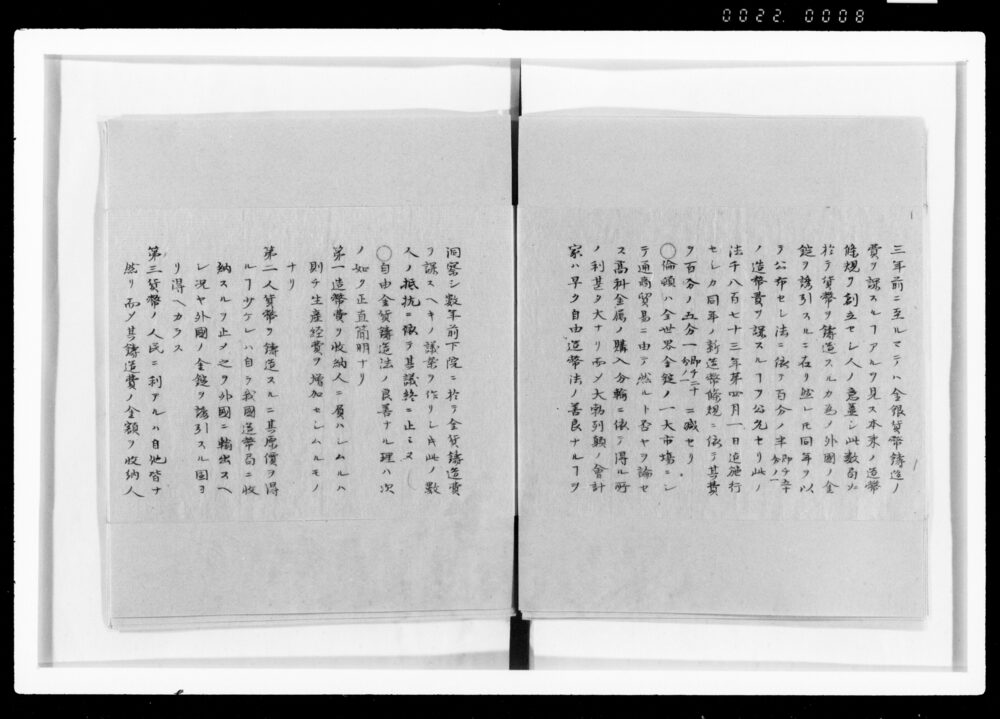 0022 0008
三年前ニ至ルマテハ金銀貨幣鋳造ノ
費ヲ課スルヿアルヲ見ス本来ノ造幣
條規ヲ創立セシ人ノ意蓋シ此数局ニ
於テ貨幣ヲ鋳造スルカ為ノ外國ノ金
錠ヲ誘引スルニ在リ然レ𪜈同年ヲ以
ヲ公布セシ法ニ依テ百分ノ半即チ五十分ノ一
ノ造幣費ヲ課スルヿヲ公允セリ此ノ
法千八百七十三年第四月一日迠施行
セシカ同年ノ新造幣條規ニ依テ其費
ヲ百分ノ五分一即チ二十分ノ一ニ減セリ
〇倫頓ハ全世界金錠ノ一大市場ニシ
テ通商貿易ニ由テ然ルト否ヤヲ論セ
ス高科金属ノ購入分輸ニ依テ得ル所
ノ利甚タ大ナリ而〆大勃列顛ノ會計
家ハ早ク自由造幣法ノ善良ナルヿヲ
洞察シ数年前下院ニ於テ金貨鋳造費
ヲ課スヘキノ議案ヲ作リシ𪜈此ノ数
人ノ抵抗ニ依テ其議終ニ止ミヌ
〇自由金貨鋳造法ノ良善ナル理ハ次
ノ如ク正直簡明ナリ
第一造幣費ヲ收納人ニ負ハシムルハ
則チ生産経費ヲ増加セシムルモノ
ナリ
第二人貨幣ヲ鋳造スルニ其原價ヲ得
ルヿ少ケレハ自ラ我國造幣局ニ收
納スルヲ止メ之ヲ外國ニ輸出スヘ
レ况ヤ外國ノ金錠ヲ誘引スル固ヨ
リ得ヘカラス
第三貨幣ノ人民ニ利アルハ自他皆ナ
然リ而〆其鋳造費ノ金額ヲ收納人